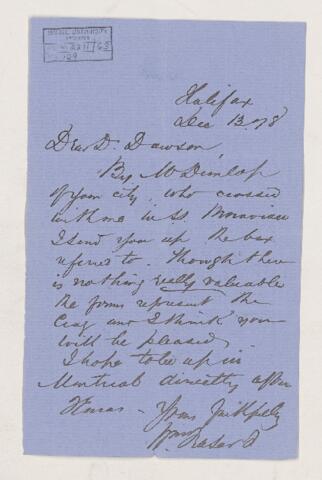 McGILL UNIVERSITY
ARCHIVES
Halifax
Dec 13. 78
Dear Dr. Dawson,
By Mr Dunlop
of your city, who crossed
with me in SS. Moravian
I send you up the box
referred to. Though there
is nothing really valuable
the forms represent the
Crag and I think you
will be pleased.
I hope to be up in
Montreal directly after
Xmas - Yours faithfully
Wm Fraser